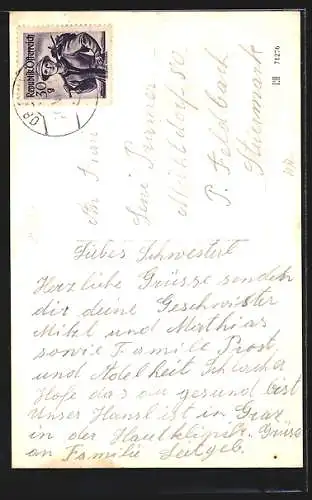 Republik Österreich
30 g
71276
An Frau
Leni
Mühldorf 50
P. Feldbach
Steiermark
Liebes Schwesterl
Herzliche Grüsse senden
dir deine Geschwister
Mitzl und Mathias
sowie Familie Prost
und Adelheit
Hofe das du gesund bist
Unser Hansl ist in Graz
in der Grüsse
an Familie